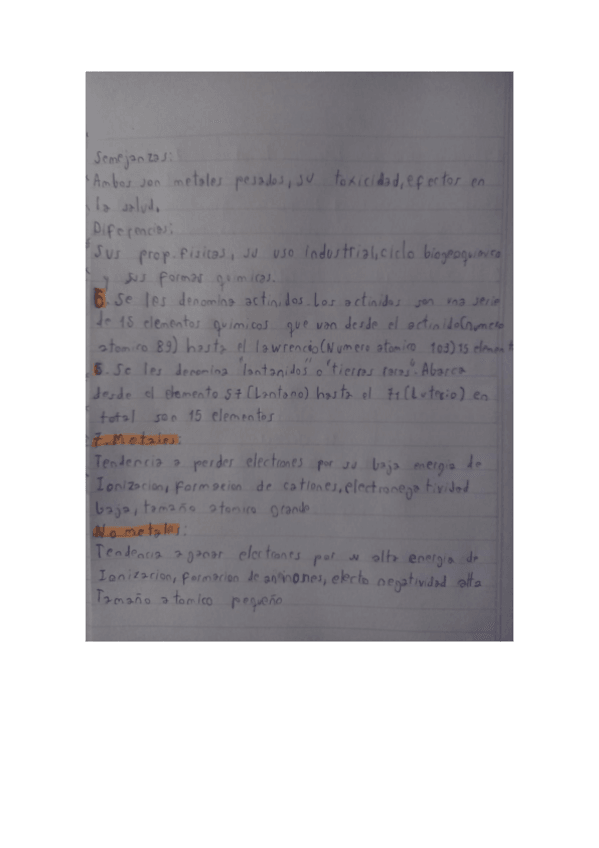 Semejanzas:
Ambos son metales pesados, su toxicidad, efectos en
la salud.
Diferencias:
Sus prop. fisicas, su uso industrial, ciclo biogeoquimico
y sus formas quimicas.
6. Se les denomina actinidos. Los actinidos son una serie
de 15 elementos quimicos que van desde el actinido(numero
atomico 89) hasta el lawrencio(Numero atomico 103) 15 element
8. Se les denomina "lantanidos" o "tierras raras". Abarca
desde el elemento 57 (Lantano) hasta el 71 (Lutecio) en
total son 15 elementos
7. Metales:
Tendencia a perder electrones por su baja energia de
Ionizacion, formacion de cationes, electronegatividad
baja, tamaño atomico grande
No metales:
Tendencia a ganar electrones por su alta energia de
Ionizacion, formacion de electo negatividad alta
Tamaño atomico pequeño